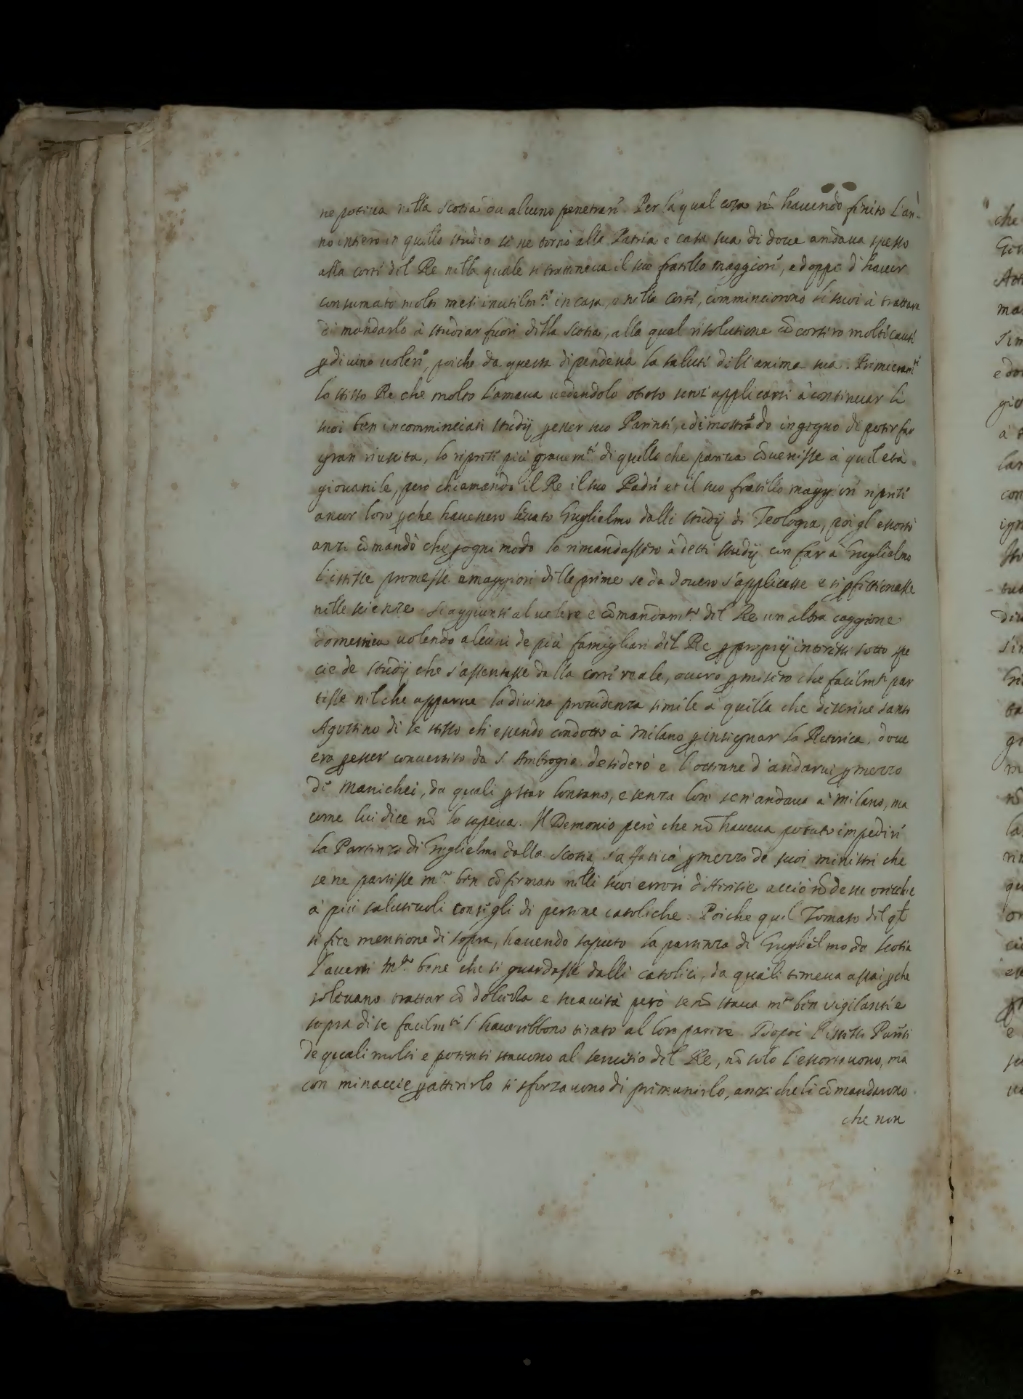 ne poteua nella Scotia da alcuno penetrarsi. Per la qual cosa nõ hauendo finito l'an-
no intiero in quello studio se ne tornò alla Patria e casa sua, di doue andaua spesso
alla corte del Re nella quale si tratteneua il suo fratello maggiore, e doppo d'hauer
consumato molti mesi inutilmte in casa, e nella corte, comminciorono li suoi à trattare
di mandarlo à studiar fuori della Scotia, alla qual risolutione cõcorsero molte cause
ꝑ diuino uolere, poiche da questa dipendeua la salute dell'anima sua. Primieramte
lo stesso Re che molto l'amaua uedendolo otioso senz' applicarsi à continuar li
suoi ben incomminciati studij ꝑ esser suo Parente, e dimostrãdo ingegno di poter far
gran riuscita, lo riprese più grauemte di quello che pareua cõuenisse à quel età
giouanile, però chiamando il Re il suo Padre et il suo fratello maggiore riprese
ancor loro ꝑche hauessero leuato Guglielmo dalli studij di Teologia, poi gl'essortò
anzi cõmandò che ꝑ ogni modo lo rimandassero à detti studij con far à Guglielmo
l'istesse promesse e maggiori delle prime se da douero s'applicasse e si ꝑfettionasse
nelle scienze. Si aggiunse al uolere e cõmandamto del Re un altra caggione
domestica uolendo alcuni de più famigliari del Re ꝑ proprij interessi sotto spe
cie de studij che s'assentasse dalla corte reale, ouero ꝑ mistero che facilmte par
tisse nel che apparue la diuina prouidenza simile à quella che descriue Santo
Agostino di se stesso ch'essendo condotto à Milano ꝑ insegnar la Retorica, doue
era ꝑ esser conuertito da S. Ambrogio desiderò e l'ottenne d'andarui ꝑ mezzo
de Manichei, da quali ꝑ star lontano, e senza loro se n'andaua à Milano, ma
come lui dice nõ lo sapeua. Il Demonio però che nõ haueua potuto impedire
la Partenza di Guglielmo dalla Scotia s'affaticò ꝑ mezzo de suoi ministri che
se ne partisse mto ben cõfirmato nelli suoi errori d'heresie acciò nõ desse orecchie
à più saluteuoli consigli di persone catoliche. Poiche quel Tomaso del ql
si fece mentione di sopra, hauendo saputo la partenza di Guglielmo da Scotia
l'auertì mto bene che si guardasse dalli catolici, da quali temeua assai ꝑche
soleuano trattar cõ dolcezza e soauità però se nõ staua mto ben vigilante
sopra di se facilmte l'hauerebbono tirato al lor parere. Dopoi l'istessi Parẽti
de quali molti e potenti stauono al seruitio del Re, nõ solo l'essortauono, ma
con minaccie ꝑ atterrirlo si sforzauono di premunirlo, anzi che li cõmandauono
che non